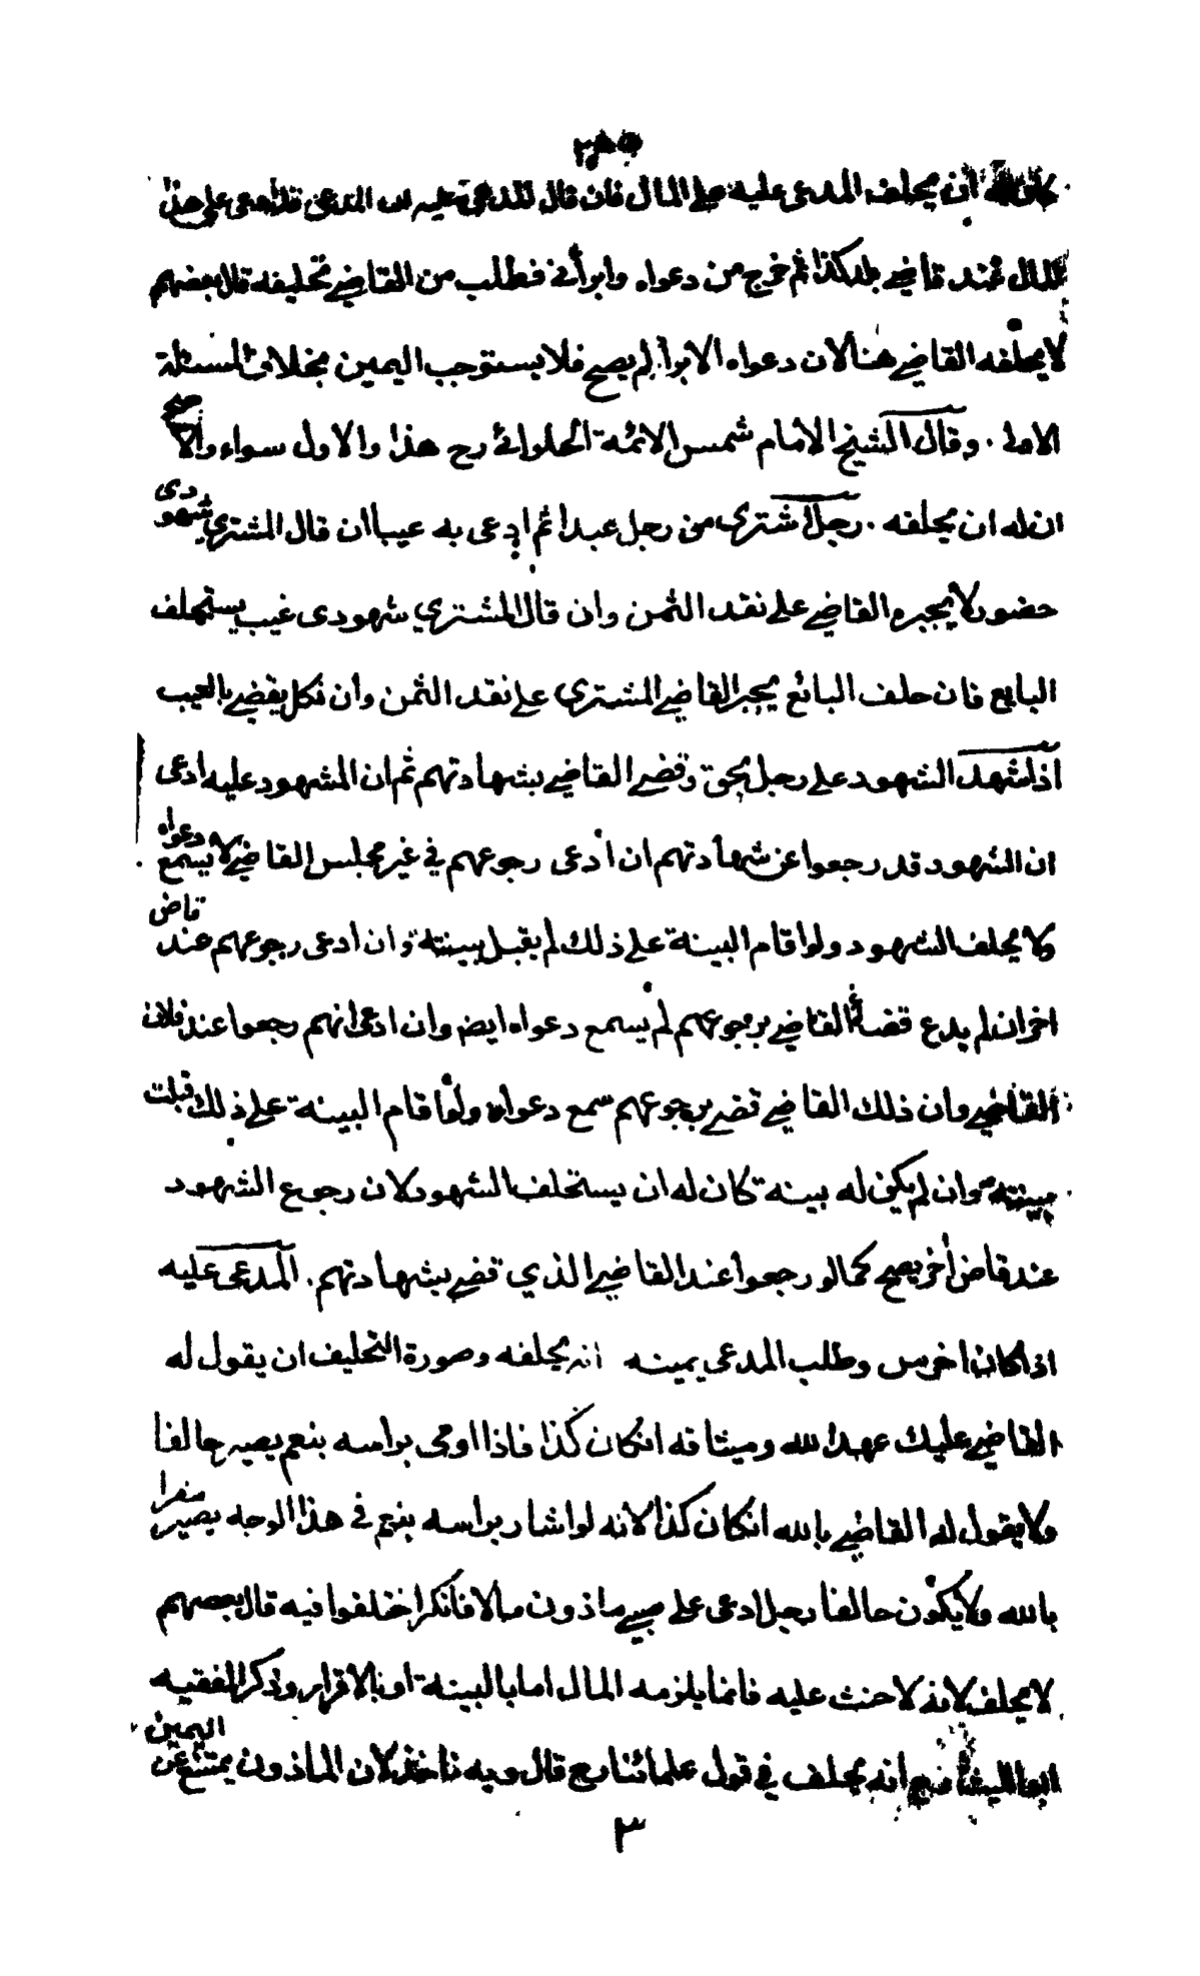 ان يحلف المدعى عليه على المال فان قال المدعى عليه ان المدعى قد ادعى على هذا
المال عند قاضي بلد كذا ثم خرج من دعواه وابرأني فطلب من القاضي تحليفه قال بعضهم
لا يحلفه القاضي هنا لان دعواه الابرأ لم يصح فلا يستوجب اليمين بخلاف المسئلة
الاولى . وقال الشيخ الامام شمس الائمة الحلوائي رح هذا والاول سواء والاصح
ان له ان يحلفه . رجل اشترى من رجل عبدا ثم ادعى به عيبا ان قال المشتري شهودى
حضور لا يجبره القاضي على نقد الثمن وان قال المشتري شهودى غيب يستحلف
البايع فان حلف البائع يجبر القاضي المشترى على نقد الثمن وان نكل يقضي بالعيب
اذا شهد الشهود على رجل بحق وقضى القاضي بشهادتهم ثم ان المشهود عليه ادعى
ان الشهود قد رجعوا عن شهادتهم ان ادعى رجوعهم في غير مجلس القاضي لا يسمع دعواه
ولا يحلف الشهود ولو اقام البينة على ذلك لم يقبل بينته وان ادعى رجوعهم عند قاض
اخر ان لم يدع قضأ القاضي برجوعهم لم يسمع دعواه ايضا وان ادعى انهم رجعوا عند فلان
القاضي وان ذلك القاضي قضى برجوعهم سمع دعواه ولو اقام البينة على ذلك قبلت
بينته وان لم يكن له بينة كان له ان يستحلف الشهود لان رجوع الشهود
عند قاض أخر يصح كما لو رجعوا عند القاضي الذي قضى بشهادتهم . المدعى عليه
اذا كان اخرس وطلب المدعى يمينه انه يحلفه وصورة التحليف ان يقول له
القاضي عليك عهد الله وميثاقه انكان كذا فاذا اومى براسه بنعم يصير حالفا
ولا يقول له القاضي بالله انكان كذا لانه لو اشار براسه بنعم في هذا الوجه يصير مقرا
بالله ولا يكون حالفا رجل ادعى على صبي ماذون مالا فأنكر اختلفوا فيه قال بعضهم
لا يحلف لانه لا حنث عليه فانما يلزمه المال اما بالبينة او بالاقرار وذكر الفقيه
ابو الليث انه يحلف في قول علمائنا رح قال وبه ناخذ لان الماذون يمتنع عن اليمين
٣